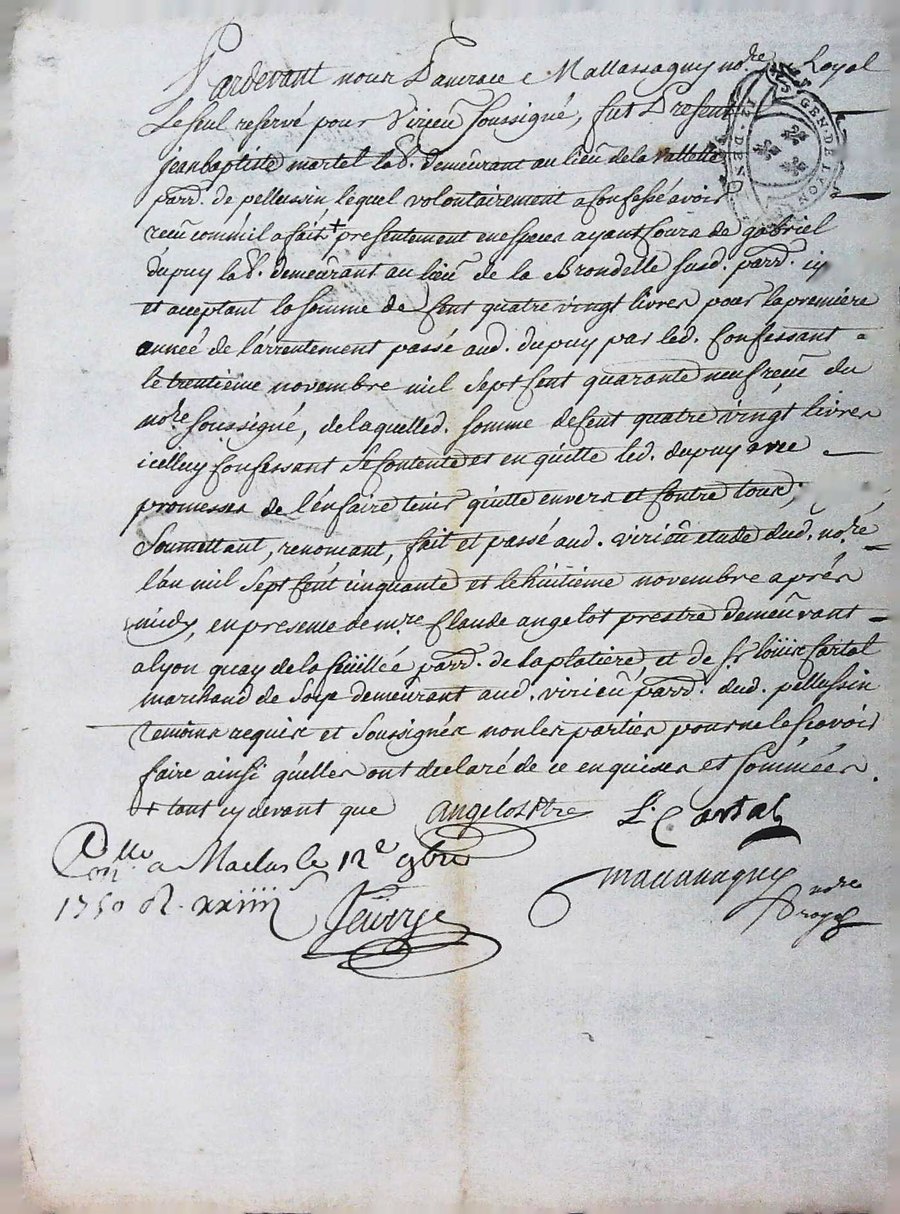 Pardevant nous Pancrace Mallassagny no.re Royal
Le seul reservé pour Virieu soussigné, fut Present
jean baptiste martel lab.r demeurant au lieu de la Vallette
parr.e de pellussin lequel volontairement a confessé avoir
reçu comm'il a fait + presentement en especes ayant cours de gabriel
dupuy lab.r demeurant au lieu de la Brondelle susd. parr.e icy
et aceptant la somme de Cent quatre vingt livres pour la premiere
année de l'arrentement passé aud. dupuy par led. Confessant
le trentième novembre mil sept Cent quarante neuf reçu du
no.re soussigné, de laquelled. somme de Cent quatre vingt livres
icelluy Confessant se Contente et en quitte led. dupuy avec
promesses de l'en faire tenir quitte envers et Contre tous;
Soumettant, renonçant, fait et passé aud. virieu etude dud. no.re
l'an mil sept Cent cinquante et le huitième novembre après
midy, en presence de m.re Claude angelot prestre demeurant
a lyon quay de la feuillée parr.e de la platière, et de s.r louis Cartal
marchand de soye demeurant aud. virieu parr.e dud. pellussin
temoins requis et soussignés non les parties pour ne le sçavoir
faire ainsi qu'elles ont declaré de ce enquises et sommées.
+ tout cy devant que
angelot Ptre
L. Cartal
a Maclas le 12e 9bre
1750 R. xxiiii s
Mallassagny
no.re
royal
GEN DE LYON